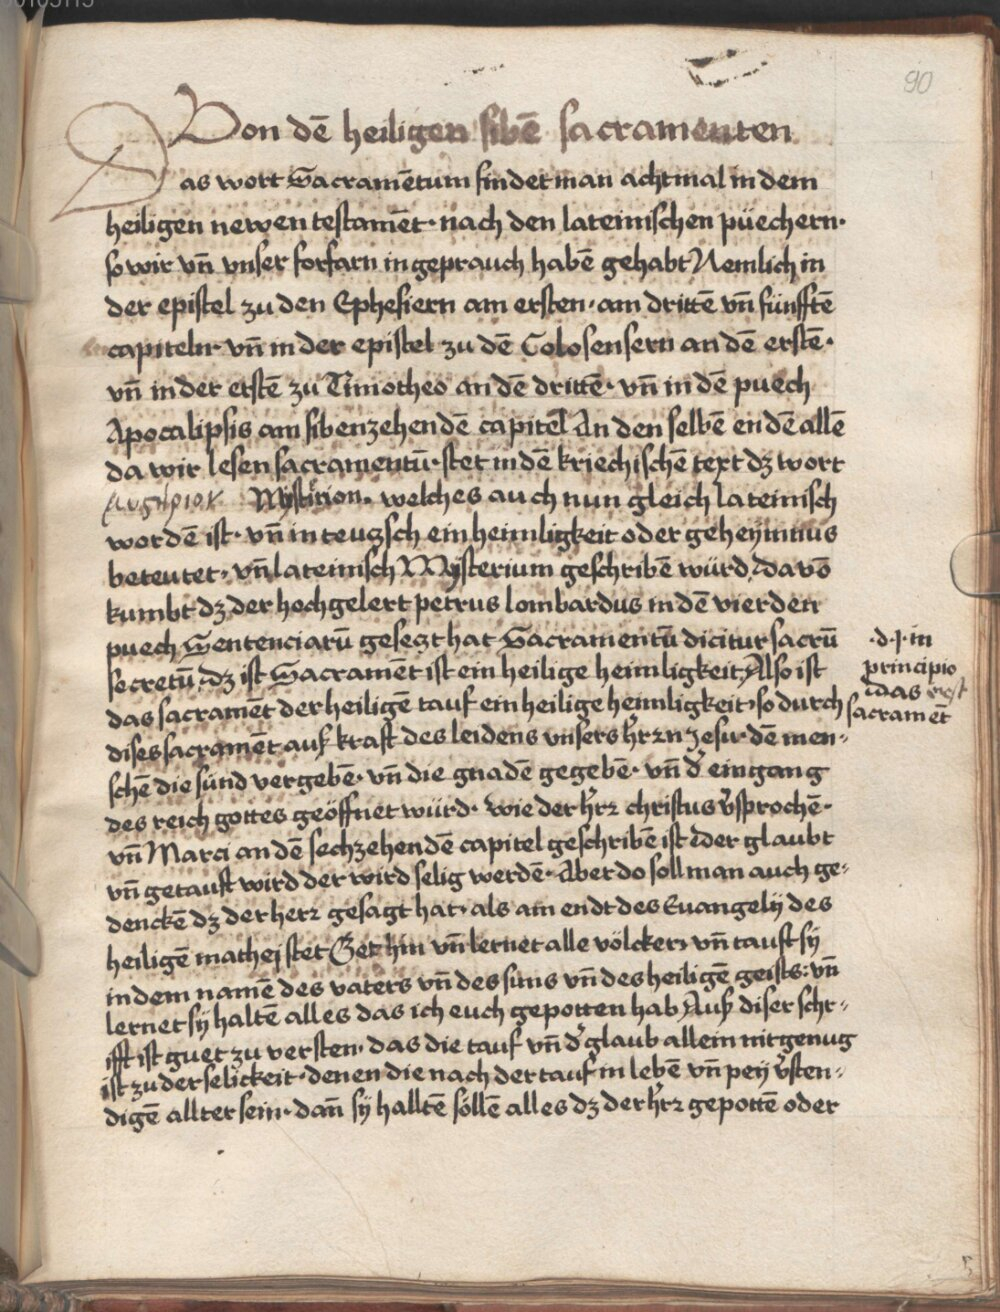 90
Von dē heiligen sibē sacramenten
Das wort Sacramētum findet man achtmal in dem
heiligen newen testamēt· nach den lateinischen püechern·
so wir vñ vnser forfarn in geprauch habē gehabt Nemlich in
der epistel zu den Ephesiern am ersten· am drittē vñ fünfftē
capiteln· vñ in der epistel zu dē Colosensern an dē erstē·
vñ in der erstē zu Timotheo an dē drittē· vñ in dē puech
Apocalipsis am sibenzehendē capitel An den selbē endē allē
da wir lesen sacramentū· stet in dē kriechischē text dz wort
Mysterion· welches auch nun gleich lateinisch
wordē ist· vñ in teutzsch ein heimligkeit oder geheymnus
beteutet· vñ lateinisch Mysterium geschribē würd· davō
kumbt dz der hochgelert petrus lombardus in dē vierden
puech Sentenciarū gesetzt hat Sacramentū dicitur sacrū
secretū· dz ist Sacramēt ist ein heilige heimligkeit· Also ist
das sacramēt der heiligē tauf ein heilige heimligkeit· so durch
dises sacramēt auß kraft des leidens vnsers hrzn Jesu· dē men-
schē die sünd vergebē· vñ die gnadē gegebē· vñ d' eingang
des reich gottes geöffnet würd· wie der hrz christus v'sprochē·
vñ Marci an dē sechzehendē capitel geschribē ist der glaubt
vñ getauft wird der wird selig werdē· Aber do soll man auch ge-
denckē dz der herz gesagt hat· als am endt des Euangelij des
heiligē mathei stet Get hin vñ lernet alle völcker· vñ tauft sy
in dem namē des vaters vñ des suns vñ des heiligē geists: vñ
lernet sy haltē alles das ich euch gepotten hab Auß diser schr-
ifft ist guet zu versten· das die tauf vñ d' glaub allein nit genug
ist zu der selickeit· denen die nach der tauf in lebē vñ pey v'sten-
digē allter sein· dañ sy halltē söllē alles dz der hrz gepottē oder
·d·j· in
principio
was
sacramēt